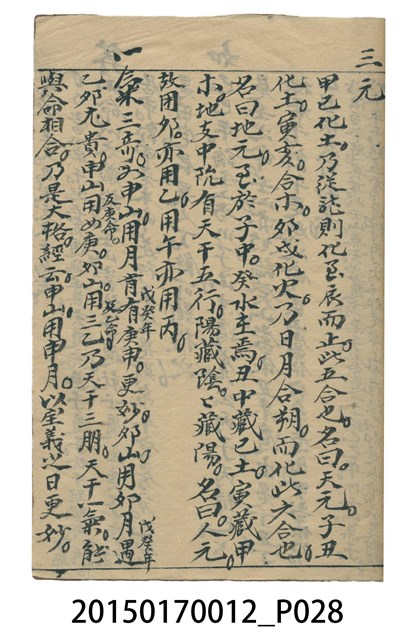 三元
甲己化土。乃從龍則化。至辰而止。此五合也。名曰天元。子丑
化土。寅亥合木。卯戌化火。乃日月合朔。而化此六合也。
名曰地元。至於子中。癸水主焉。丑中藏己土。寅藏甲
木。地支中既有天干五行。陽藏陰。陰藏陽。名曰人元。
故用卯。亦用乙。用午亦用丙。
一氣三奇。如申山用月有庚申。更妙。卯山用卯月遇
戊癸年 戊癸年
乙卯尤貴。申山用四庚。卯山用三乙。乃天干三朋。天干一氣。能
與命相合。乃是大格。經云。申山用申月。以至義之日更妙。
20150170012_P028